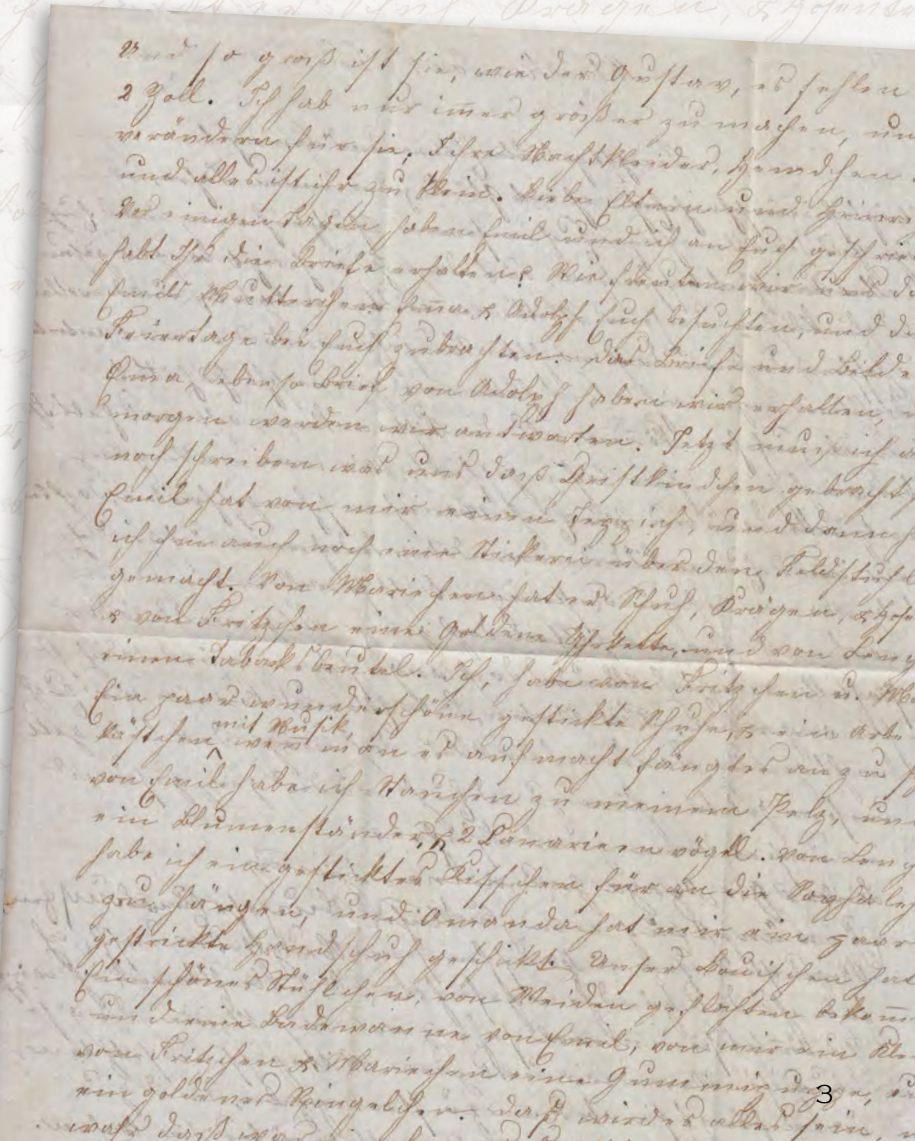 und so groß ist sie, wie der Gustav, es fehlen
2 Zoll. Ich hab nur im̅er größer zu machen, un
verändern für sie, Ihre Nachtkleider, Hemdchen
und alles ist ihr zu klein. Liebe Eltern und
Vor einigen Tagen haben Emil und ich an Euch geschrie
habt Ihr die Briefe erhalten? Wie freuten wir uns d
Emils Mutterchen & Adolph Euch besuchten, und d
Feiertage bei Euch zubrachten. Briefe und Bilde
Em̅a, ebenso Brief von Adolph haben wir erhalten,
morgen werden wir antworten. Jetzt muß ich
noch schreiben was uns daß Christkindchen gebracht
Emil hat von mir einen Teppich, und dann
ich ihm auch noch eine Stickerei über den Feldstuhl
gemacht. Von Mariechen hat er Schuh, Krägen, & Hose
& von Fritzchen eine goldene Uhrkette, und von
einen Tabacksbeutel. Ich, habe von Fritzchen u. M
Ein paar wunderschöne gestickte Schuhe, & ein Arbe
kästchen mit Musik, wen man es auf macht fängt es an zu
von Emil habe ich Stauchen zu meinem Pelz, un
ein Blumenständer, & 2 Canarien vögel. von
habe ich ein gesticktes Kisschen für an die Sopha
zu hängen, und Amanda hat mir ein paar
gestrickte Handschuh geschikt. Unser Louischen ha
Ein schönes Stühlchen, von Weiden geflochten bekom̅
und eine Badewanne von Emil, von mir ein Kle
von Fritzchen & Mariechen eine Gummi
ein goldenes Ringelchen. daß wird es alles sein,
3